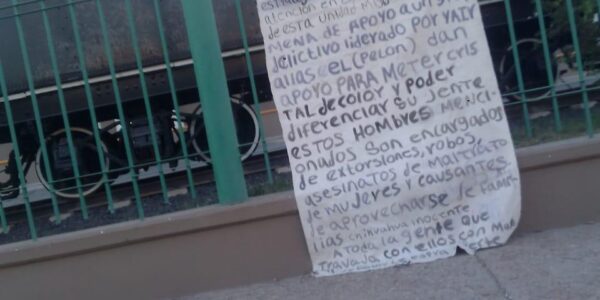 atención en
de esta unidad
MENA DE APOYO A UN
delictivo liderado POR YAIV
alias eel (pelon) dan
apoyo PARA Meter cris
TAL de color y poder
diferenciar su jente
estos HOMBRES Menci
onados son encargados
de extorsiones, robos,
asesinatos de maltrato
de mujeres y causantes
de aprovecharse de famili
lias chihuahua inocente
A toda la gente que
Travaja con ellos con